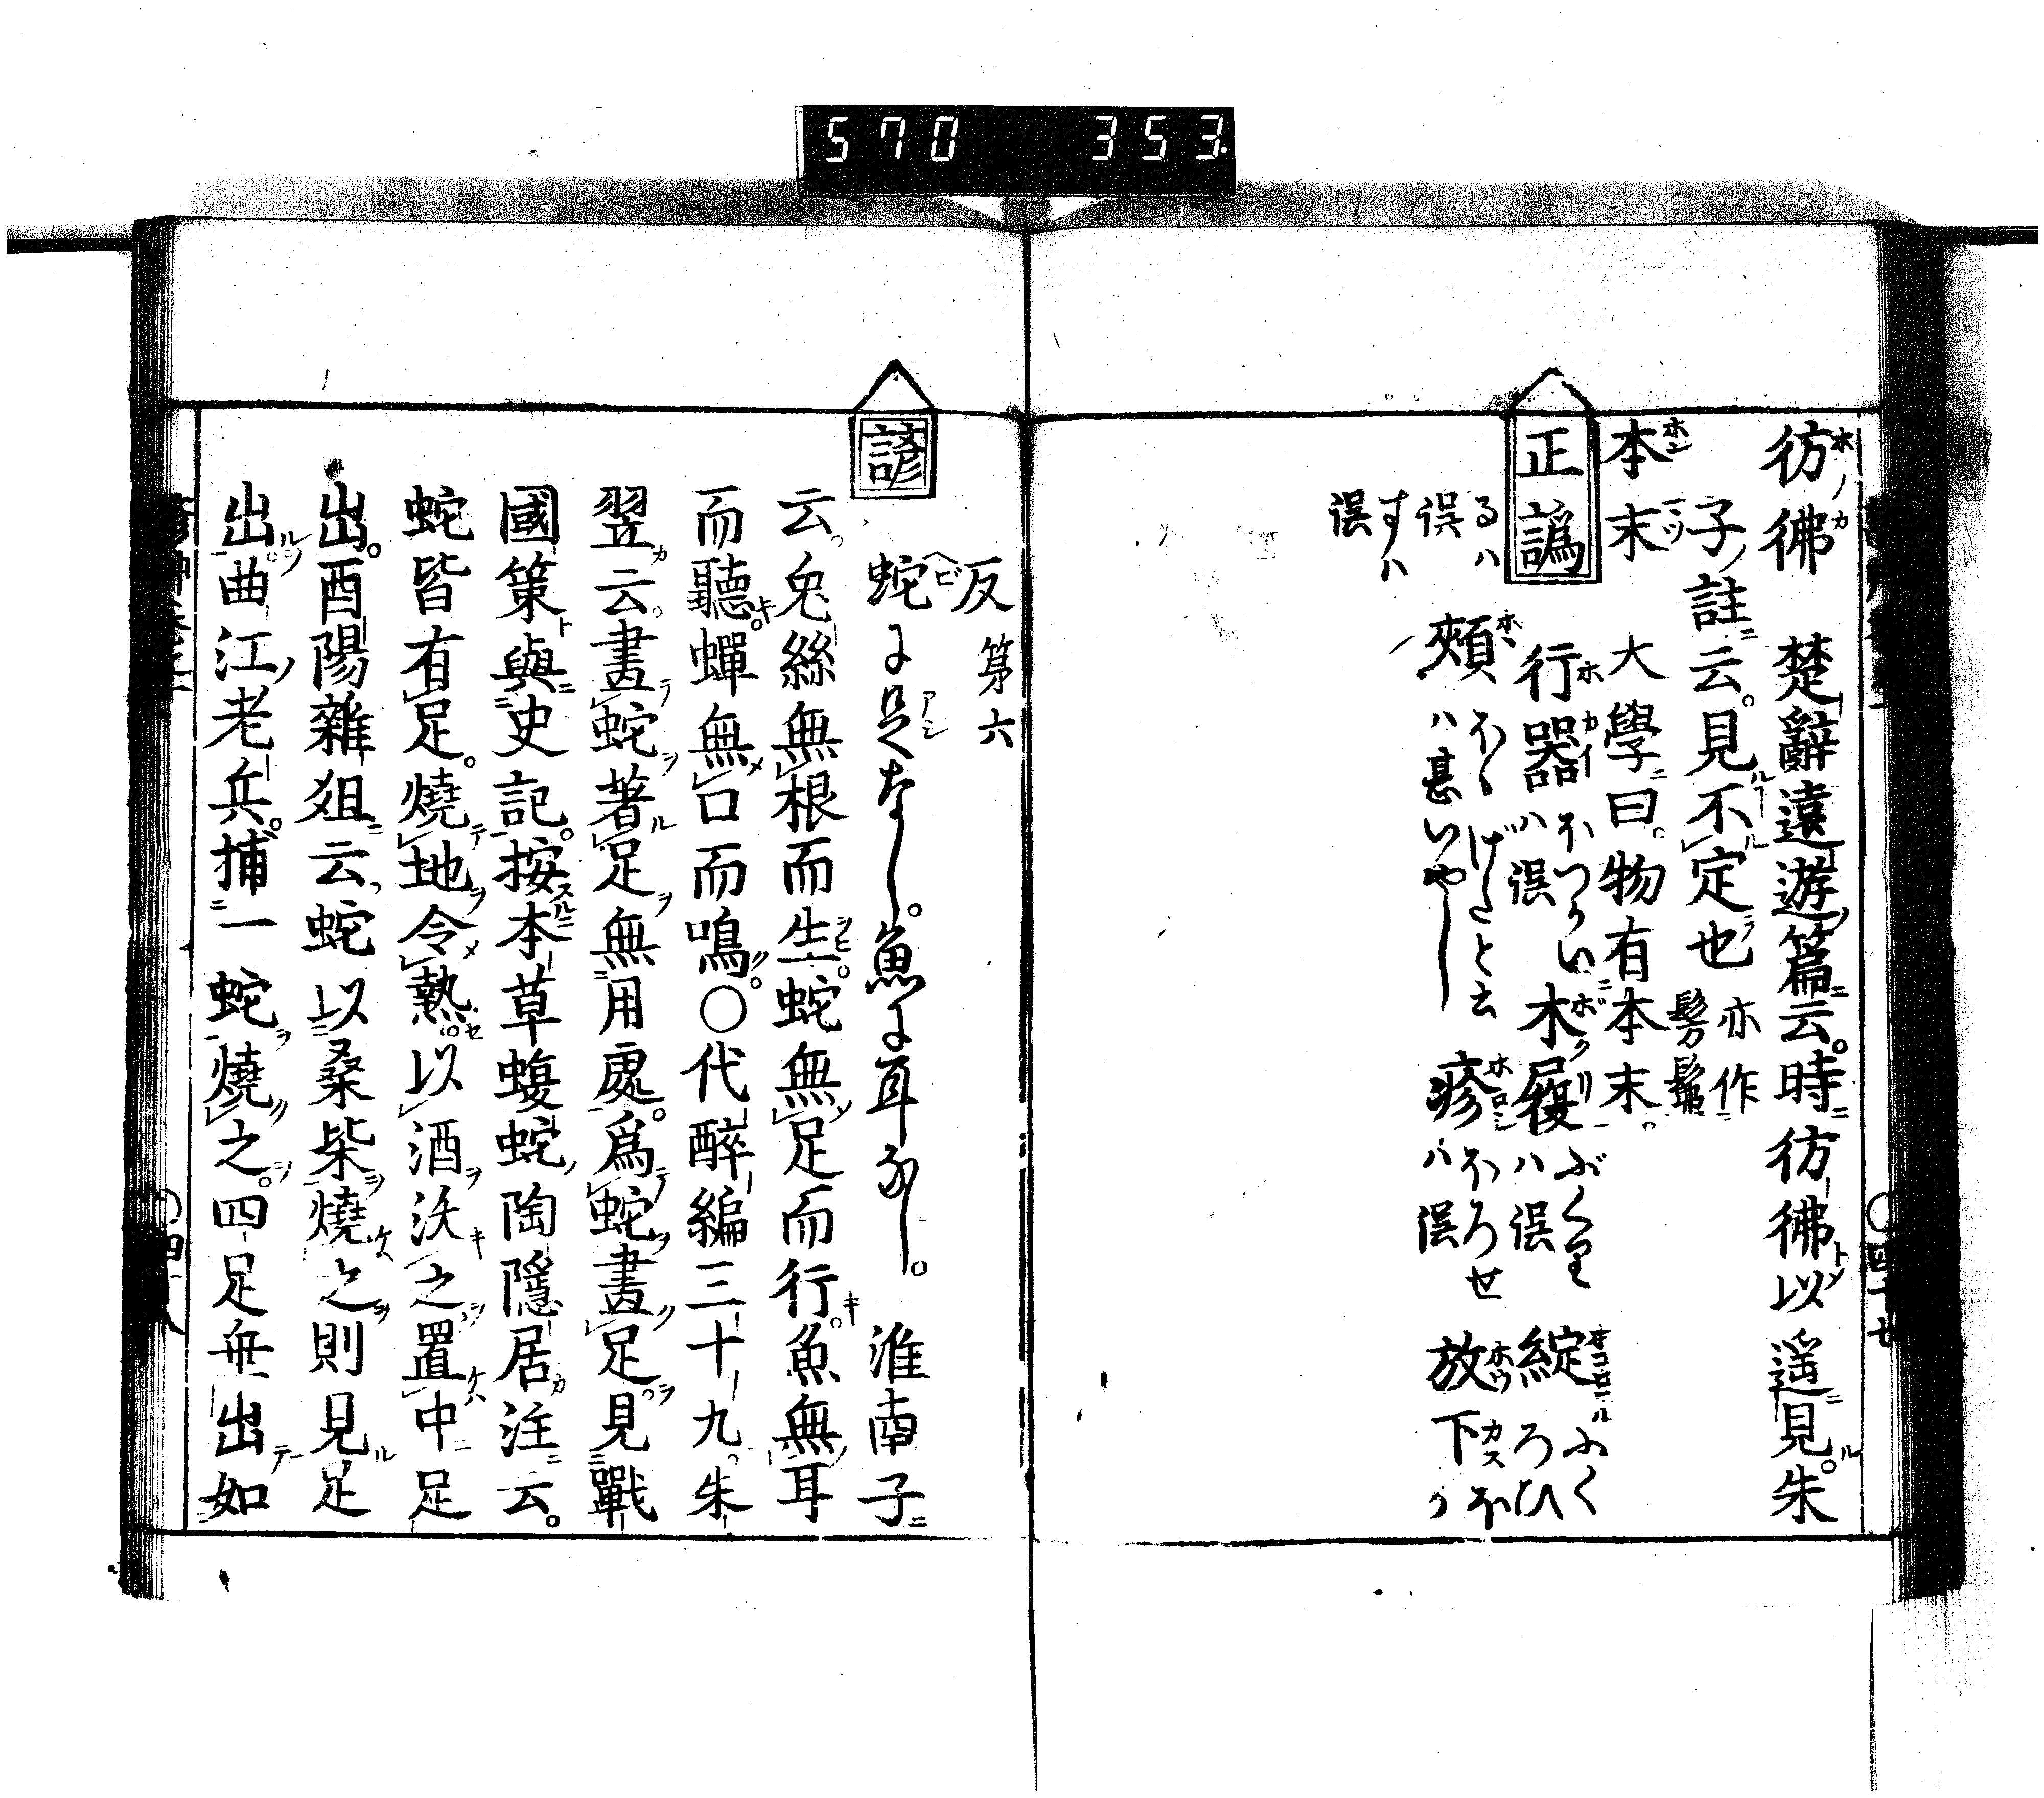 570 353
彷彿 楚辭遠遊篇云。時彷彿以遥見。朱
子註云。見不定也 亦作髣髴
本末 大學曰。物有本末。
正譌 行器ハ誤 木履ハ誤 綻
るハ誤 頰 ハ甚いやし 疹ハ誤 放下
すハ誤
反第六
諺 蛇に足なし。魚に耳なし。 淮南子
云。兔絲無根而生。蛇無足而行。魚無耳
而聽。蟬無口而鳴。〇代醉編三十九。朱
翌云。畫蛇著足無用處。爲蛇畫足。見戰
國策與史記。按本草蝮蛇陶隱居注云。
蛇皆有足。燒地令熱。以酒沃之置中足
出。酉陽雜俎云。蛇以桑柴燒之則見足
出。曲江老兵。捕一蛇燒之。四足毋出如